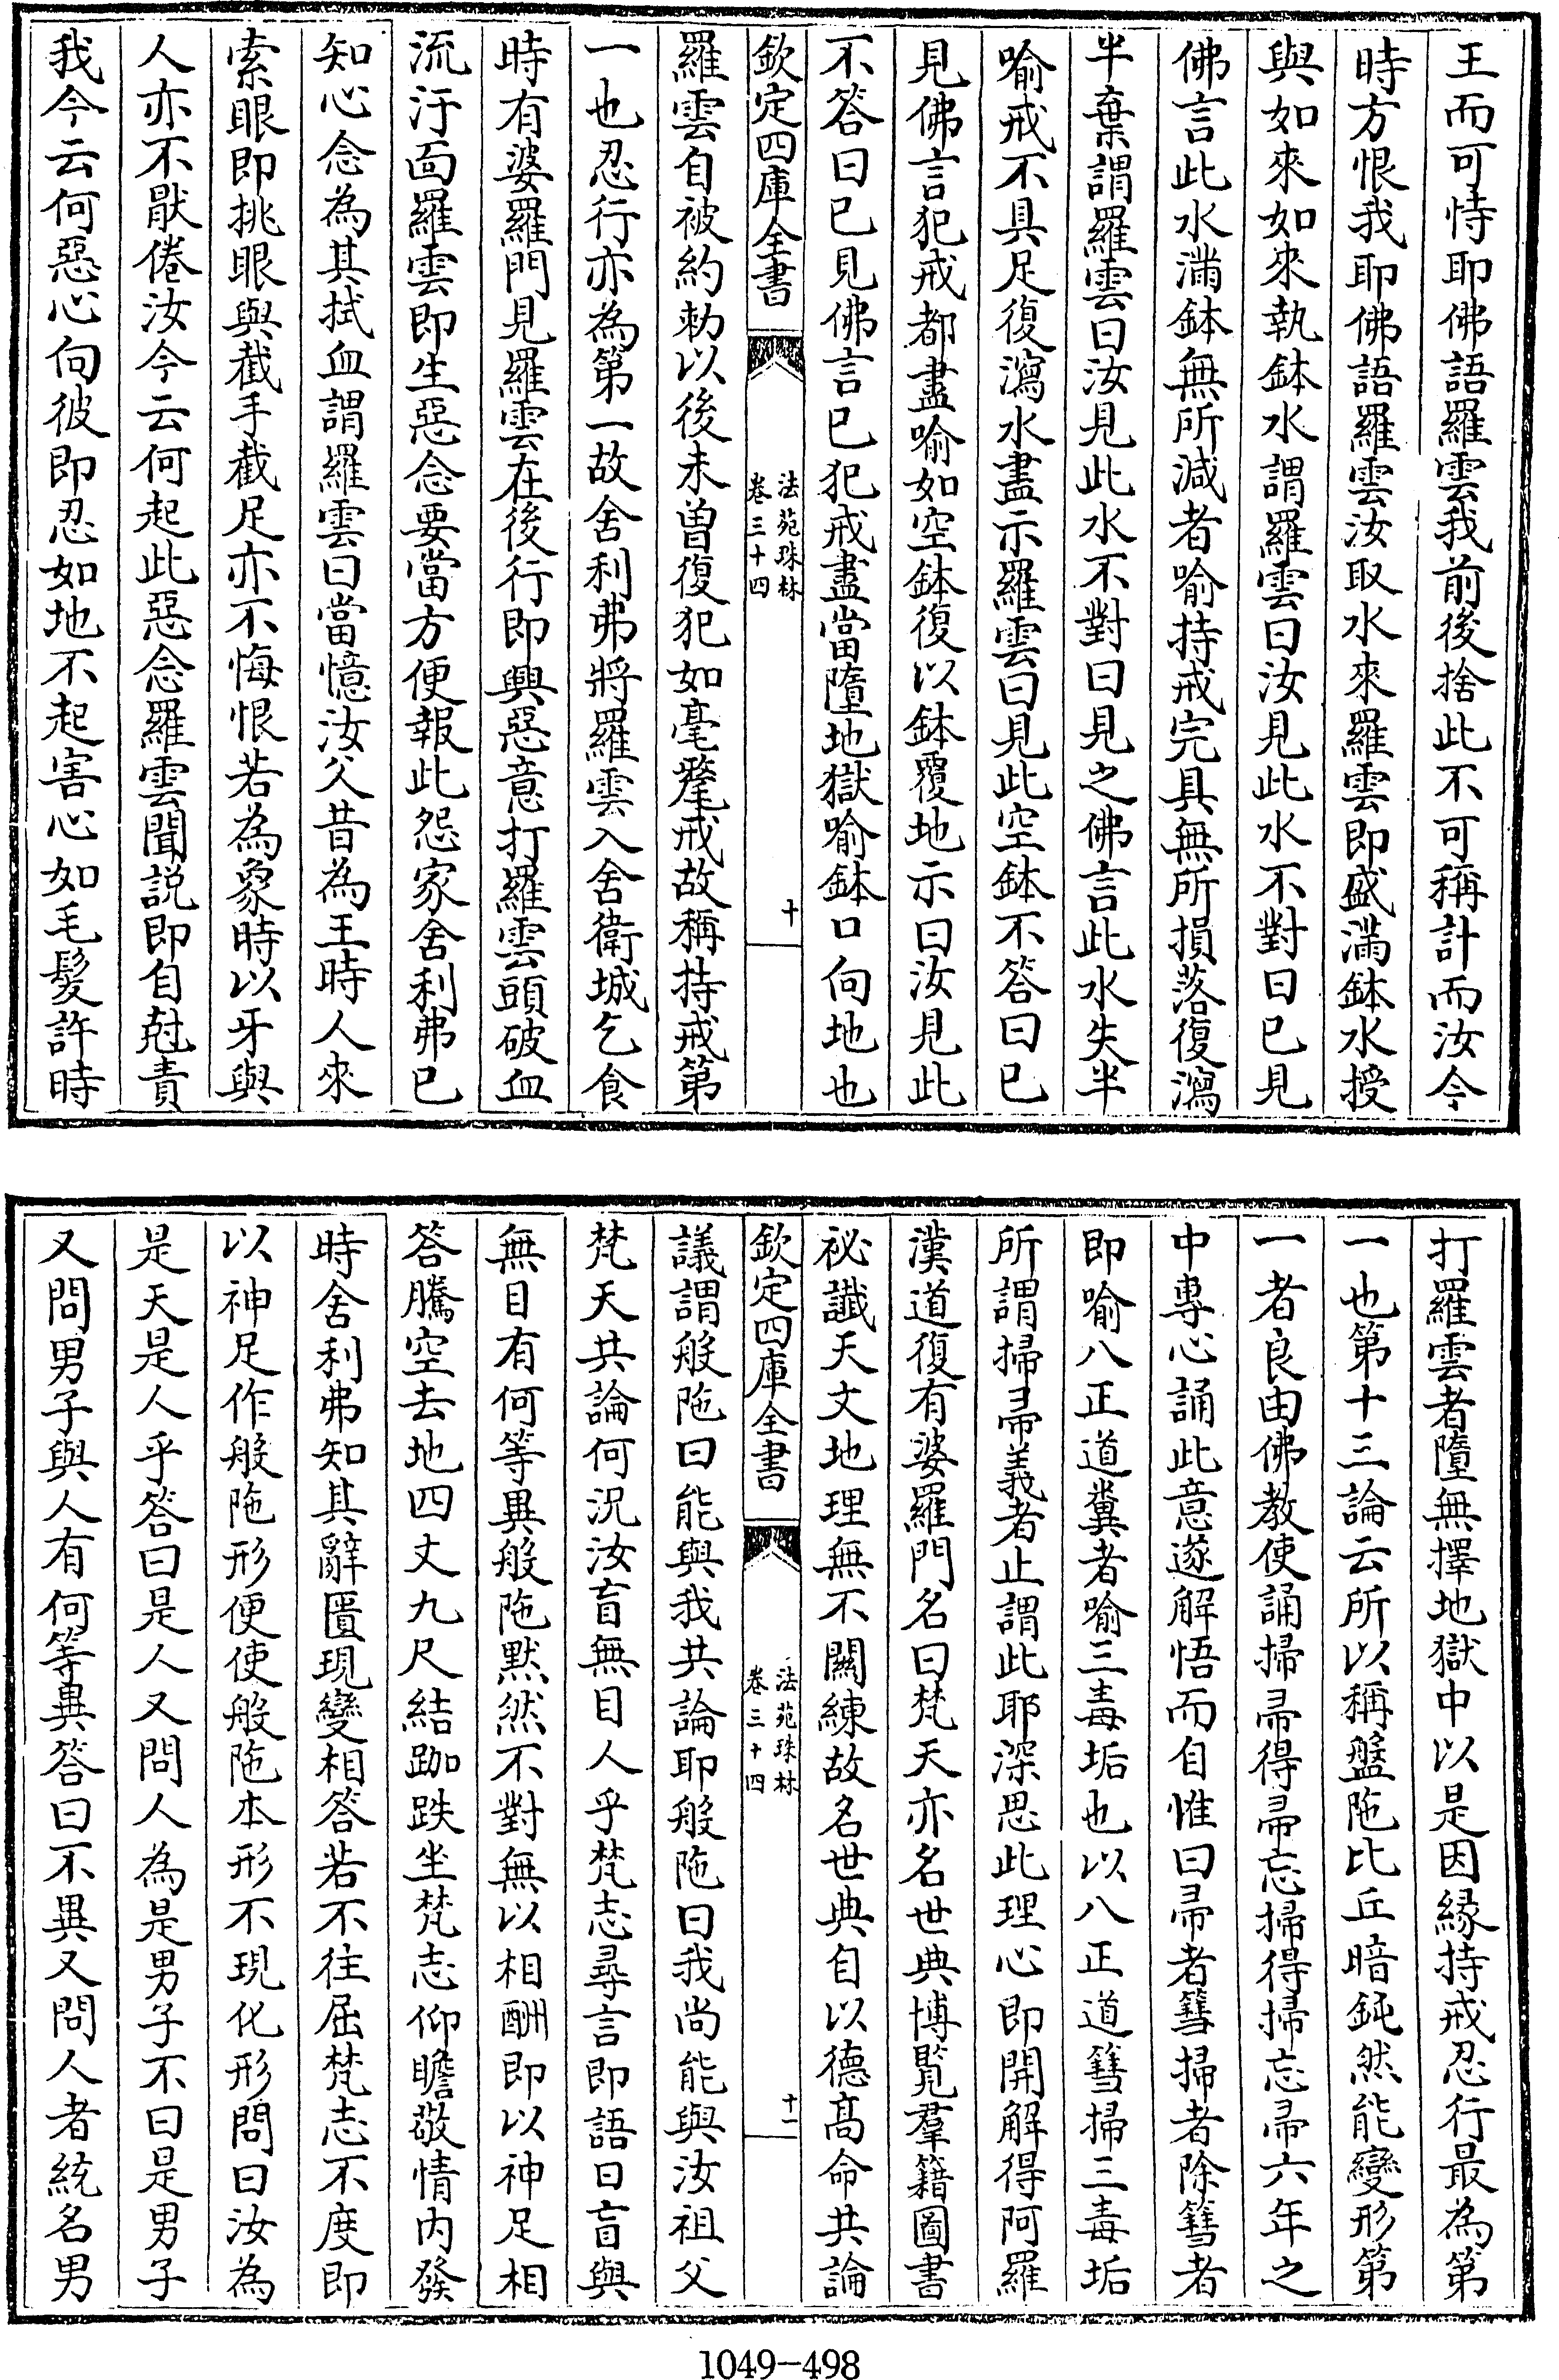 王而可恃耶佛語羅雲我前後捨此不可稱計而汝今
時方恨我耶佛語羅雲汝取水來羅雲即盛滿鉢水授
與如來如來執鉢水謂羅雲曰汝見此水不對曰已見
佛言此水滿鉢無所減者喻持戒完具無所損落復瀉
半棄謂羅雲曰汝見此水不對曰見之佛言此水失半
喻戒不具足復瀉水盡示羅雲曰見此空鉢不答曰已
見佛言犯戒都盡喻如空鉢復以鉢覆地示曰汝見此
不答曰已見佛言已犯戒盡當墮地獄喻鉢口向地也
欽定四庫全書
法苑珠林
卷三十四
十
羅雲自被約勅以後未曾復犯如毫氂戒故稱持戒第
一也忍行亦為第一故舍利弗將羅雲入舍衛城乞食
時有婆羅門見羅雲在後行即興惡意打羅雲頭破血
流汙面羅雲即生惡念要當方便報此怨家舍利弗已
知心念為其拭血謂羅雲曰當憶汝父昔為王時人來
索眼即挑眼與截手截足亦不悔恨若為象時以牙與
人亦不猒倦汝今云何起此惡念羅雲聞説即自尅責
我今云何惡心向彼即忍如地不起害心如毛髮許時
打羅雲者墮無擇地獄中以是因縁持戒忍行最為第
一也第十三論云所以稱盤陁比丘暗鈍然能變形第
一者良由佛教使誦掃帚得帚忘掃得掃忘帚六年之
中專心誦此意遂解悟而自惟曰帚者篲掃者除篲者
即喻八正道糞者喻三毒垢也以八正道篲掃三毒垢
所謂掃帚義者止謂此耶深思此理心即開解得阿羅
漢道復有婆羅門名曰梵天亦名世典博覧羣籍圖書
祕讖天文地理無不闗練故名世典自以德髙命共論
欽定四庫全書
法苑珠林
卷三十四
十一
議謂般陁曰能與我共論耶般陁曰我尚能與汝祖父
梵天共論何況汝盲無目人乎梵志尋言即語曰盲與
無目有何等異般陁黙然不對無以相酬即以神足相
答騰空去地四丈九尺結跏趺坐梵志仰瞻敬情内發
時舍利弗知其辭匱現變相答若不往屈梵志不度即
以神足作般陁形便使般陁本形不現化形問曰汝為
是天是人乎答曰是人又問人為是男子不曰是男子
又問男子與人有何等異答曰不異又問人者統名男
1049-498